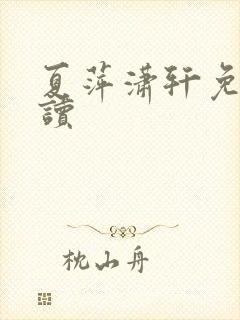 夏萍潇轩免
讀
枕山舟